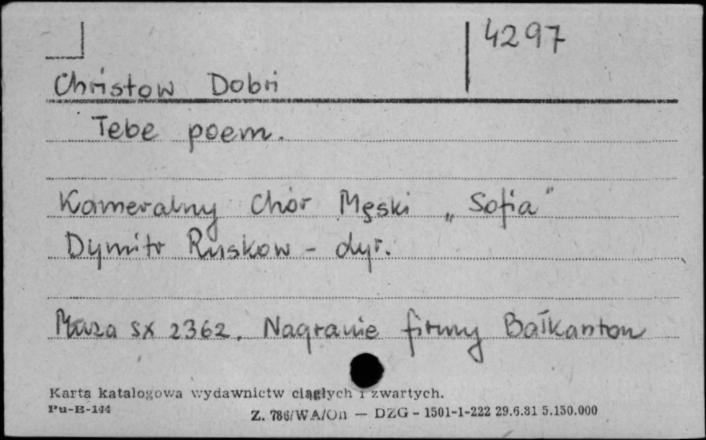 4297
Christow Dobri
Tebe poem.
Kameralny Chór Męski „Sofia"
Dymitr Ruskow - dyr.
Muza SX 2362. Nagranie firmy Bałkanton
Karta katalogowa wydawnictw ciągłych i zwartych.
Pu-B-144
Z. 786/WA/On — DZG - 1501-1-222 29.6.81 5.150.000